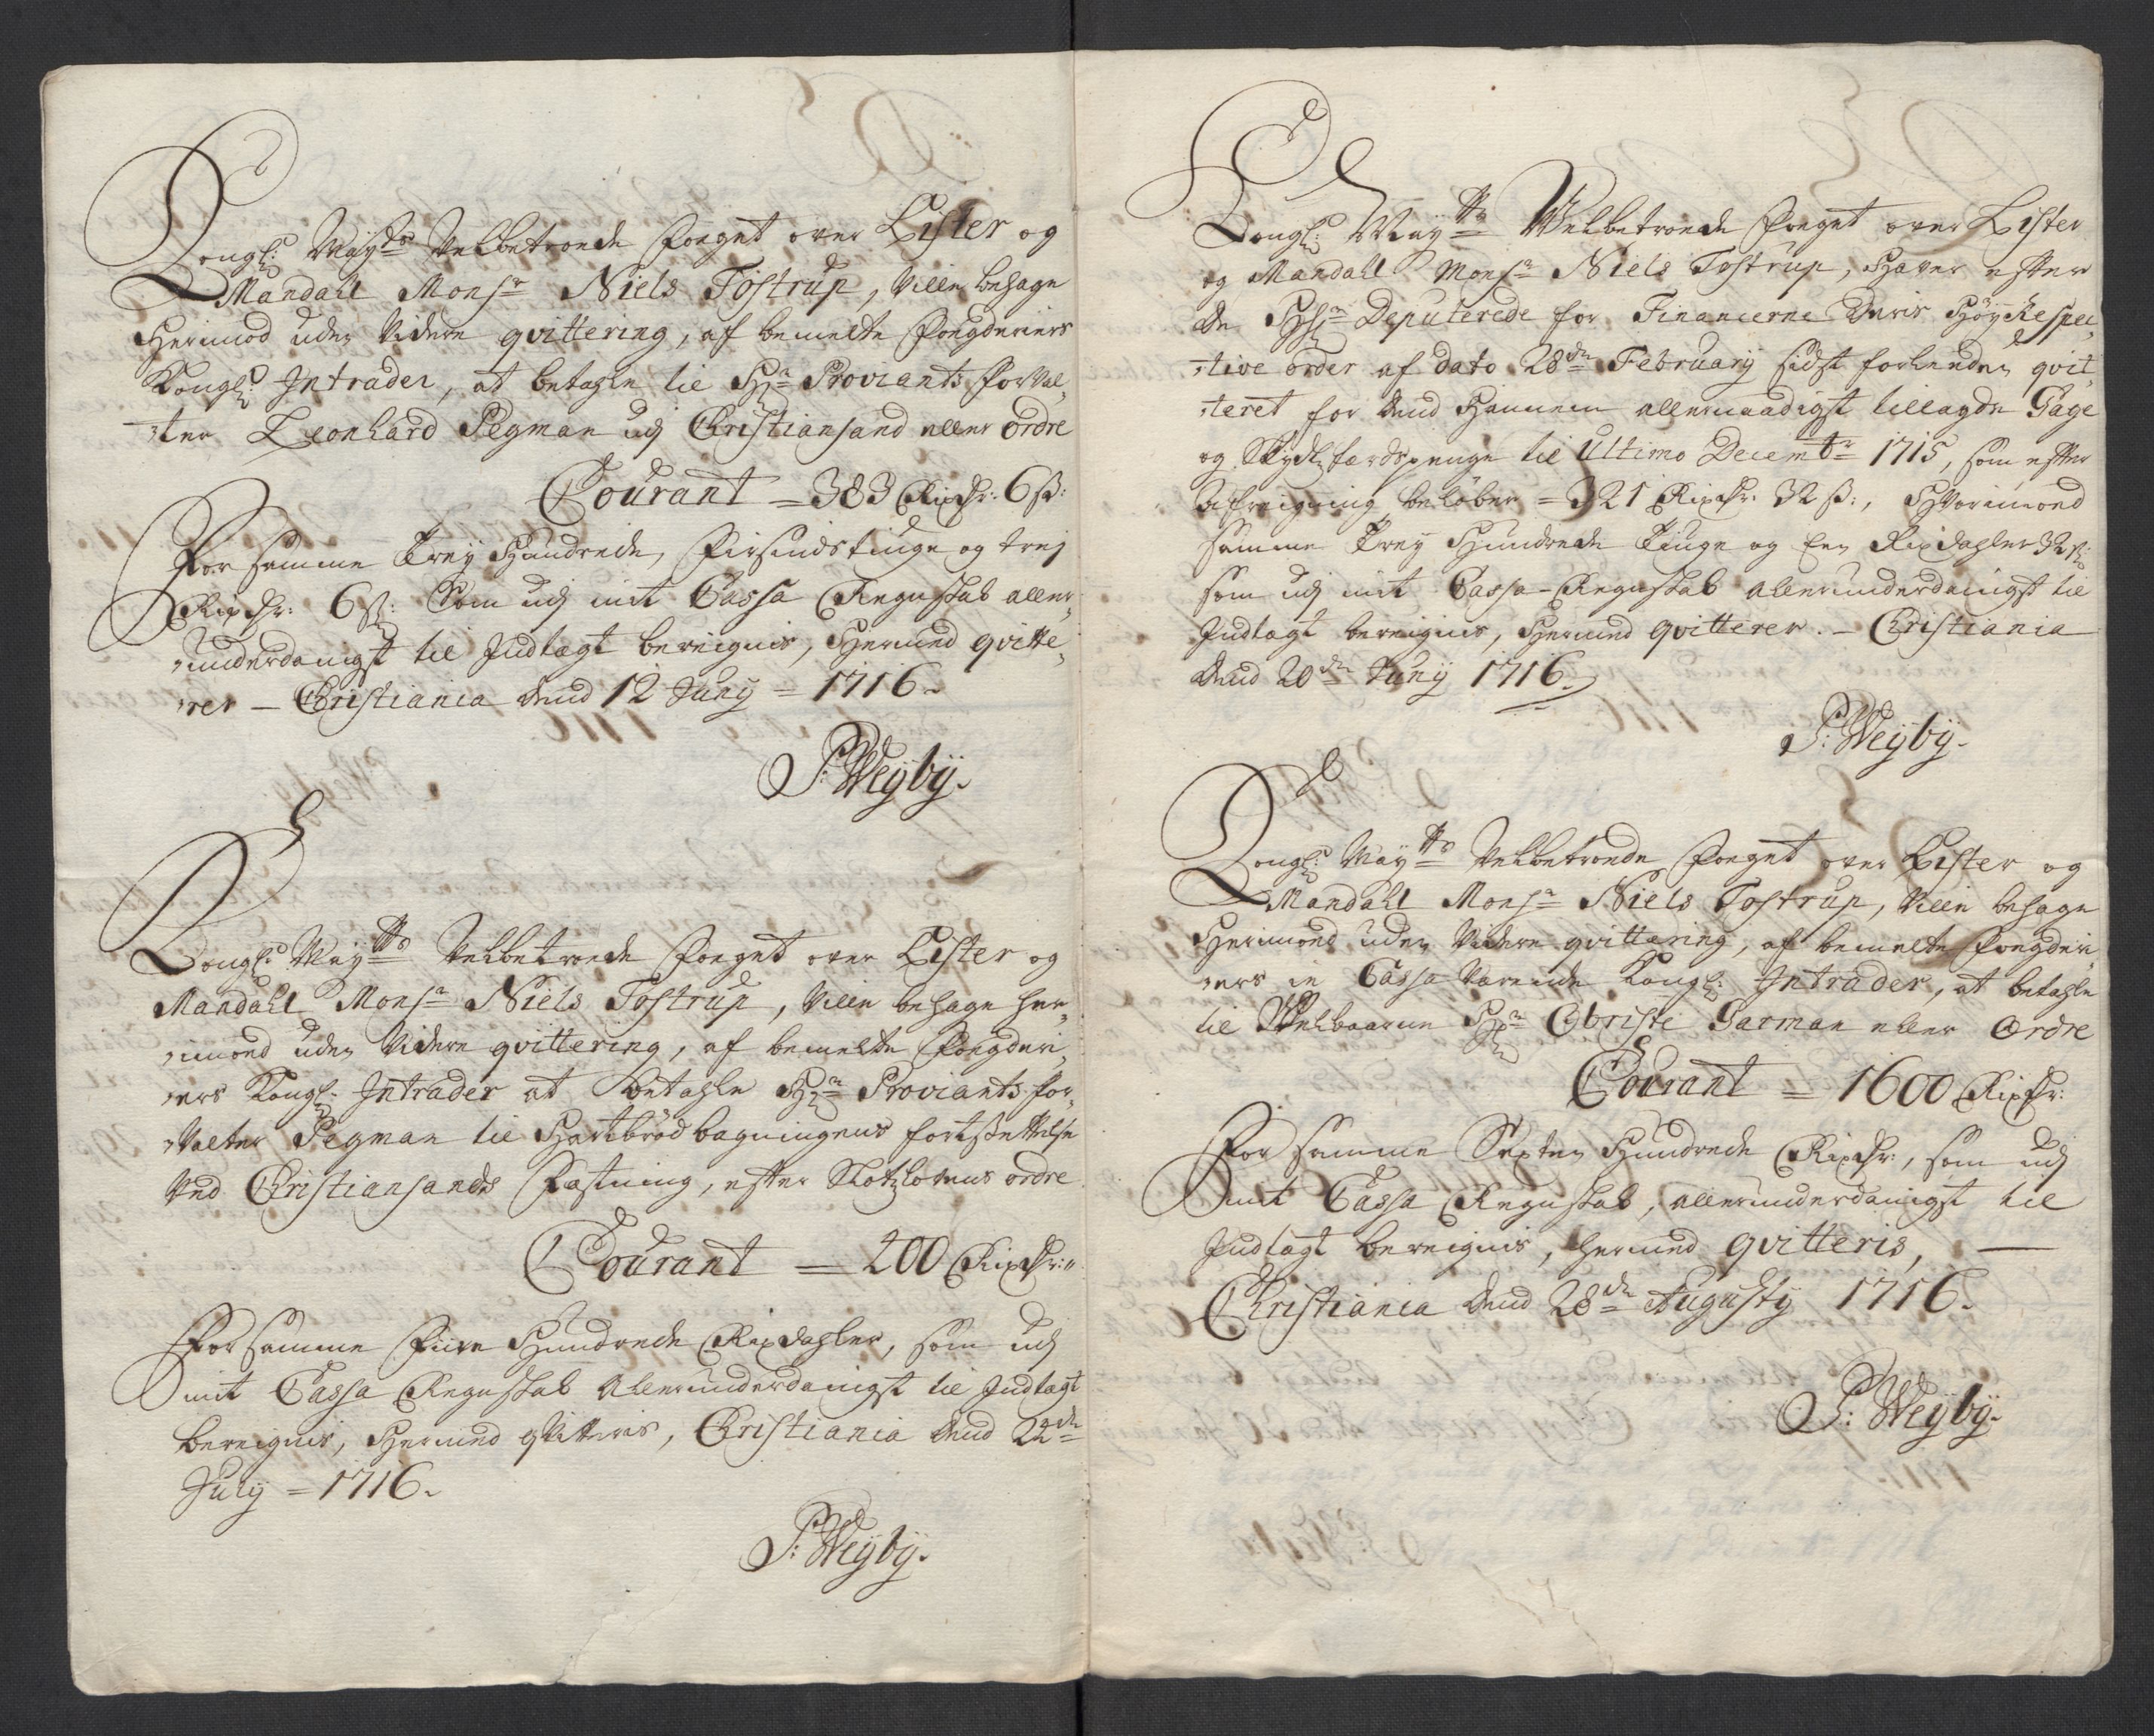 Kongl: Mayts Velbetroede Foeget over Lister og
Mandahl Monsr Niels Tostrup, ville behage
Herimod uden Videre qvittering, af bemelte Foegderiers
Kongl: Intrader, at betahle til Hr Proviantsforval-
-ter Leonhard Pegman udj Christiansand eller ordre
Courant = 383 Rixdr: 6 ß:
For samme Trey Hundrede, Firsindstiuge og trej
Rixdr: 6 ß: Som udj mit Cassa Regnskab aller-
-underdanigst til Indtægt bereignis, Hermed qvitte-
-rer – Christiania dend 12 Junij = 1716.
P: Weyby.
Kongl: Maytts Velbetroede Foeget over Lister og
Mandahl Monsr Niels Tostrup, ville behage her-
-imoed uden Videre qvittering, af bemelte Foegderi-
-ers Kongl: Intrader at betahle Hr Proviants-for-
-valter Pegman til Hartbrød bagningens fortsættelse
ved Christiansands Fæstning, efter Slotzlovens ordre
Courant = 400 Rixdr:
For samme Fiire Hundrede Rixdahler, som udj
mit Cassa Regnskab Allerunderdanigst til Indtægt
bereignis, Hermed qvitteris, Christiania dend 24de
July = 1716.
P: Weyby.
Kongl: Maytts Welbetroede Foeget over Lister
og Mandahl Monsr Niels Tostrup, Haver efter
de HHr Deputerede for Financerne Deris Høy Respec-
-tive order af dato 28de February sidst forleeden qvit-
-teret for dend Hannem allernaadigst tillagde Gage
og Skydtzfærdspenge til Ultimo Decembr 1715, som efter
Afreigning beløber = 321 Rixdr: 32 ß:, Hvorimoed
samme Trey Hundrede Tiuge og Een Rixdahler 32 ß:
som udj mit Cassa-Regnskab allerunderdanigst til
Indtægt bereignis, Hermed qvitterer. – Christiania
dend 20de Junij 1716.
P: Weyby.
Kongl: Maytts Velbetroede Foeget over Lister og
Mandahl Monsr Niels Tostrup, ville behage
Herimoed uden Videre qvittering, af bemelte Foegderi-
-ers in Cassa værende Kongl: Intrader, at betahle
til Welbaarne Hr Obriste Garman eller Ordre
Courant = 1600 Rixdr:
For samme Sexten Hundrede Rixdr:, som udj
mit Cassa Regnskab, allerunderdanigst til
Indtægt bereignis, hermed qvitteris, –
Christiania dend 28de Augusty 1716.
P: Weyby.